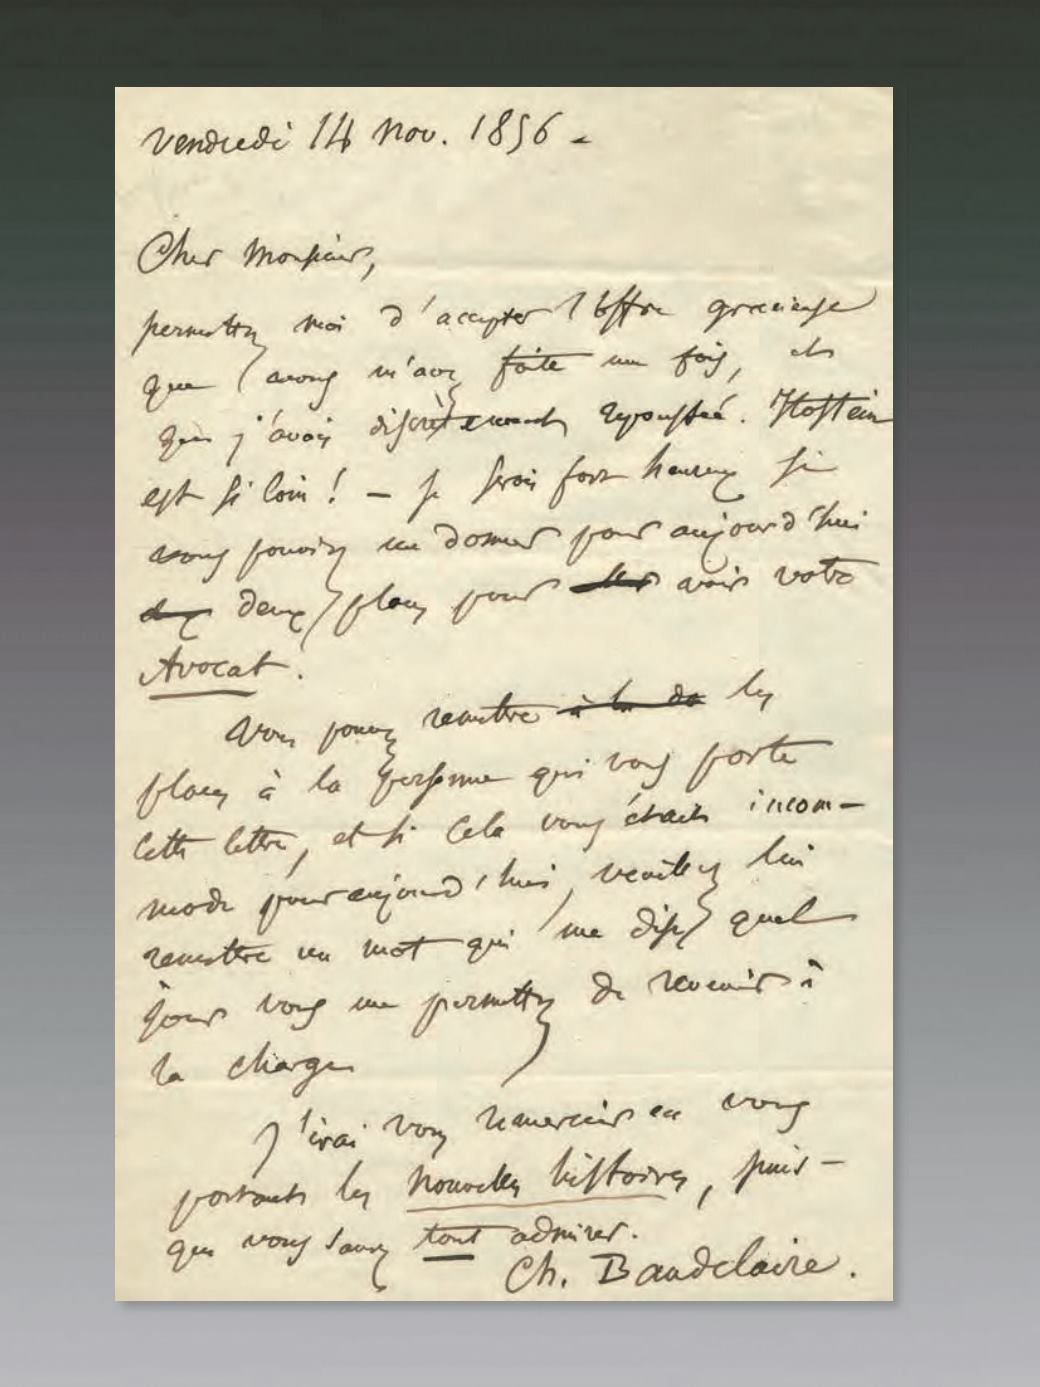 Vendredi 14 nov. 1856 -
Cher Monsieur,
permettez moi d'accepter l'offre gracieuse
que vous m'avez faite une fois, et
que j'avais discrètement repoussée. Hostein
est si loin ! — je serais fort heureux si
vous pouviez me donner pour aujourd'hui
deux places pour voir votre
Avocat.
Vous pouvez remettre à la do les
places à la personne qui vous porte
cette lettre, et si cela vous était incom-
mode pour aujourd'hui, veuillez lui
remettre un mot qui me dise quel
jour vous me permettez de revenir à
la charge
J'irai vous remercier en vous
portant les nouvelles histoires, puis-
que vous savez tout admirer.
Ch. Baudelaire.